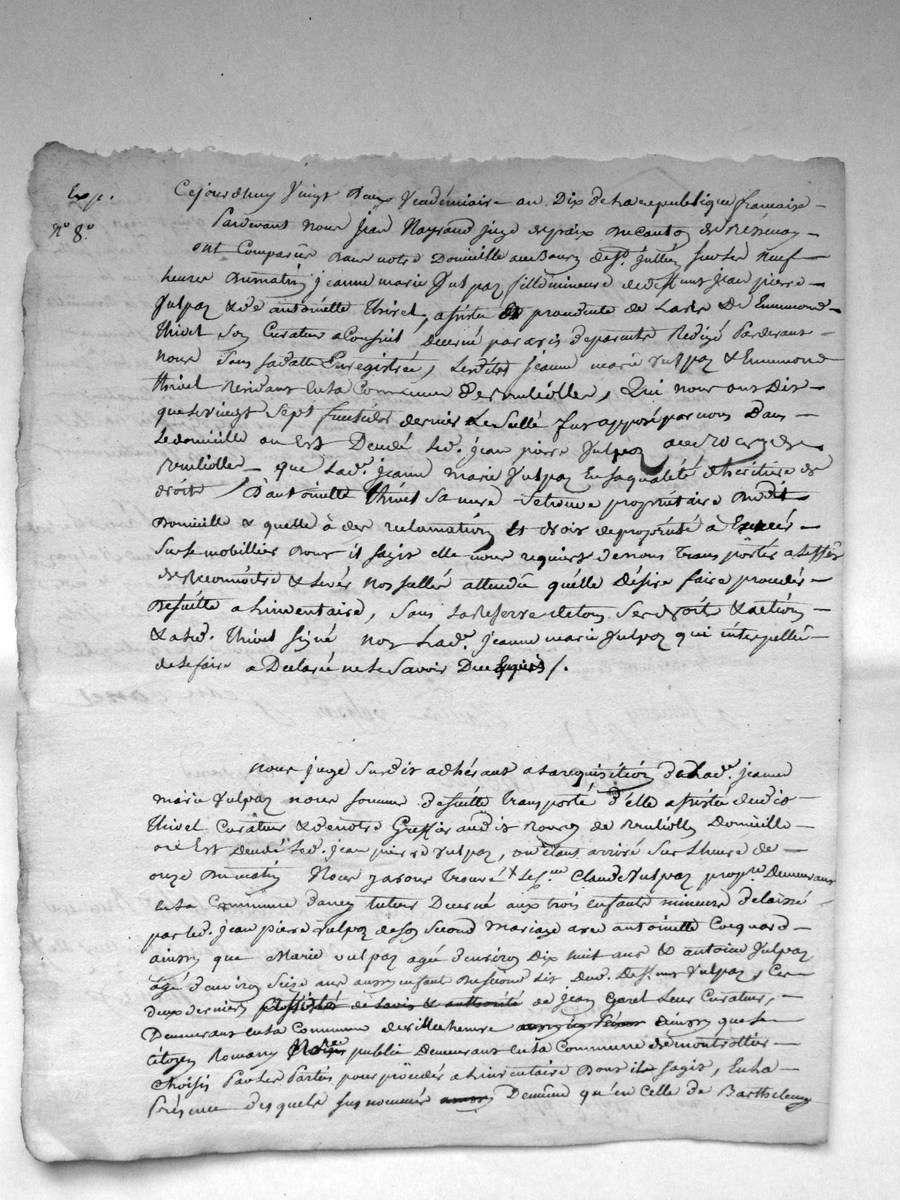 Exp.
n.o 8.o
Cejourdhuy Vingt Deux Vendémiaire an Dix dela republique francaise
Pardevant nous jean Nayrand juge depaix Ducanton de
ont Comparûe Dans notre Domicille au Bourg de St. jullien sur les neuf
heures Dumatin jeanne marie Vulpaz fille mineure de deffunt jean pierre
Vulpaz & de antoinette thivel, assistée Et procédente de Lavis De Emmond
thivel son Curateur a Conseil Decerné par avis deparents Redigé Pardevant
nous sous sadatte Enregistrée, Lesdits jeanne marie vulpaz & Emmond
thivel Residants enla Commune de, Qui nous ont Dit
que levingt sept fructidor dernier Le scellé fut apposé par nous dans
le domicille ou est Décédé led. jean pierre Vulpaz au bourg de
que lad. jeanne marie Vulpaz En saqualité dheritiere de
droit D'antoinette thivel sa mere setrouve proprietaire Dudit
Domicille & quelle à des reclamation Et droit depropriété à Exercer
Surle mobillier Dont il sagit elle nous requiert denous transporter a leffêt
de Reconnoitre & levér nos scellés attendû quelle désire faire procedér
Desuitte a Linventaire, sans lareserve detous ses droit & action
& a led. thivel signé non Lad. jeanne marie Vulpaz qui interpellée
de le faire a Declaré ne le savoir Dece Enquis /.
Nous juge susdit adhérant ala requisition de Lad. jeanne
marie Vulpaz nous sommes desuitte transporté d'elle assistée dudit
thivel Curateur & denotre Greffiér audit Bourg de Domicille
ou Est decedé led. jean pierre Vulpaz, ou étant arrivé sur Lheure de
onze Dumatin Nous y avons trouvé Claude Vulpaz prop.re Demeurant
enla Commune d'ancy tuteur Decerné aux trois enfants mineurs délaissé
par led. jean pierre Vulpaz de son second mariage avec antoinette Coquard
ainsy que Marie vulpaz agé d'environ Dix huit ans & antoine Vulpaz
agé d'environ Seize ans aussy enfant Dusecond lit Dud. Deffunt Vulpaz, Ces
deux derniers assistés de Lavis & authorité de jean Garel Leur Curateur,
Demeurant enla Commune de villechenêve ainsy que le
Citoyen Romany Notaire public Demeurant enla Commune de montrottier
Choisis Par les Parties pour procéder a Linventaire Dont il sagit, Enla
Présence desquels sus nommés Demême qu'en Celle de Barthelemy